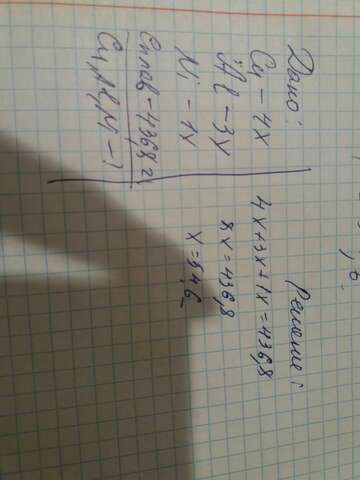 Дано:
Cu - 4x
Al - 3x
Ni - 1x
Сплав - 436,8 г
Cu, Al, Ni - ?
Решение:
4x+3x+1x=436,8
8x=436,8
x=54,6